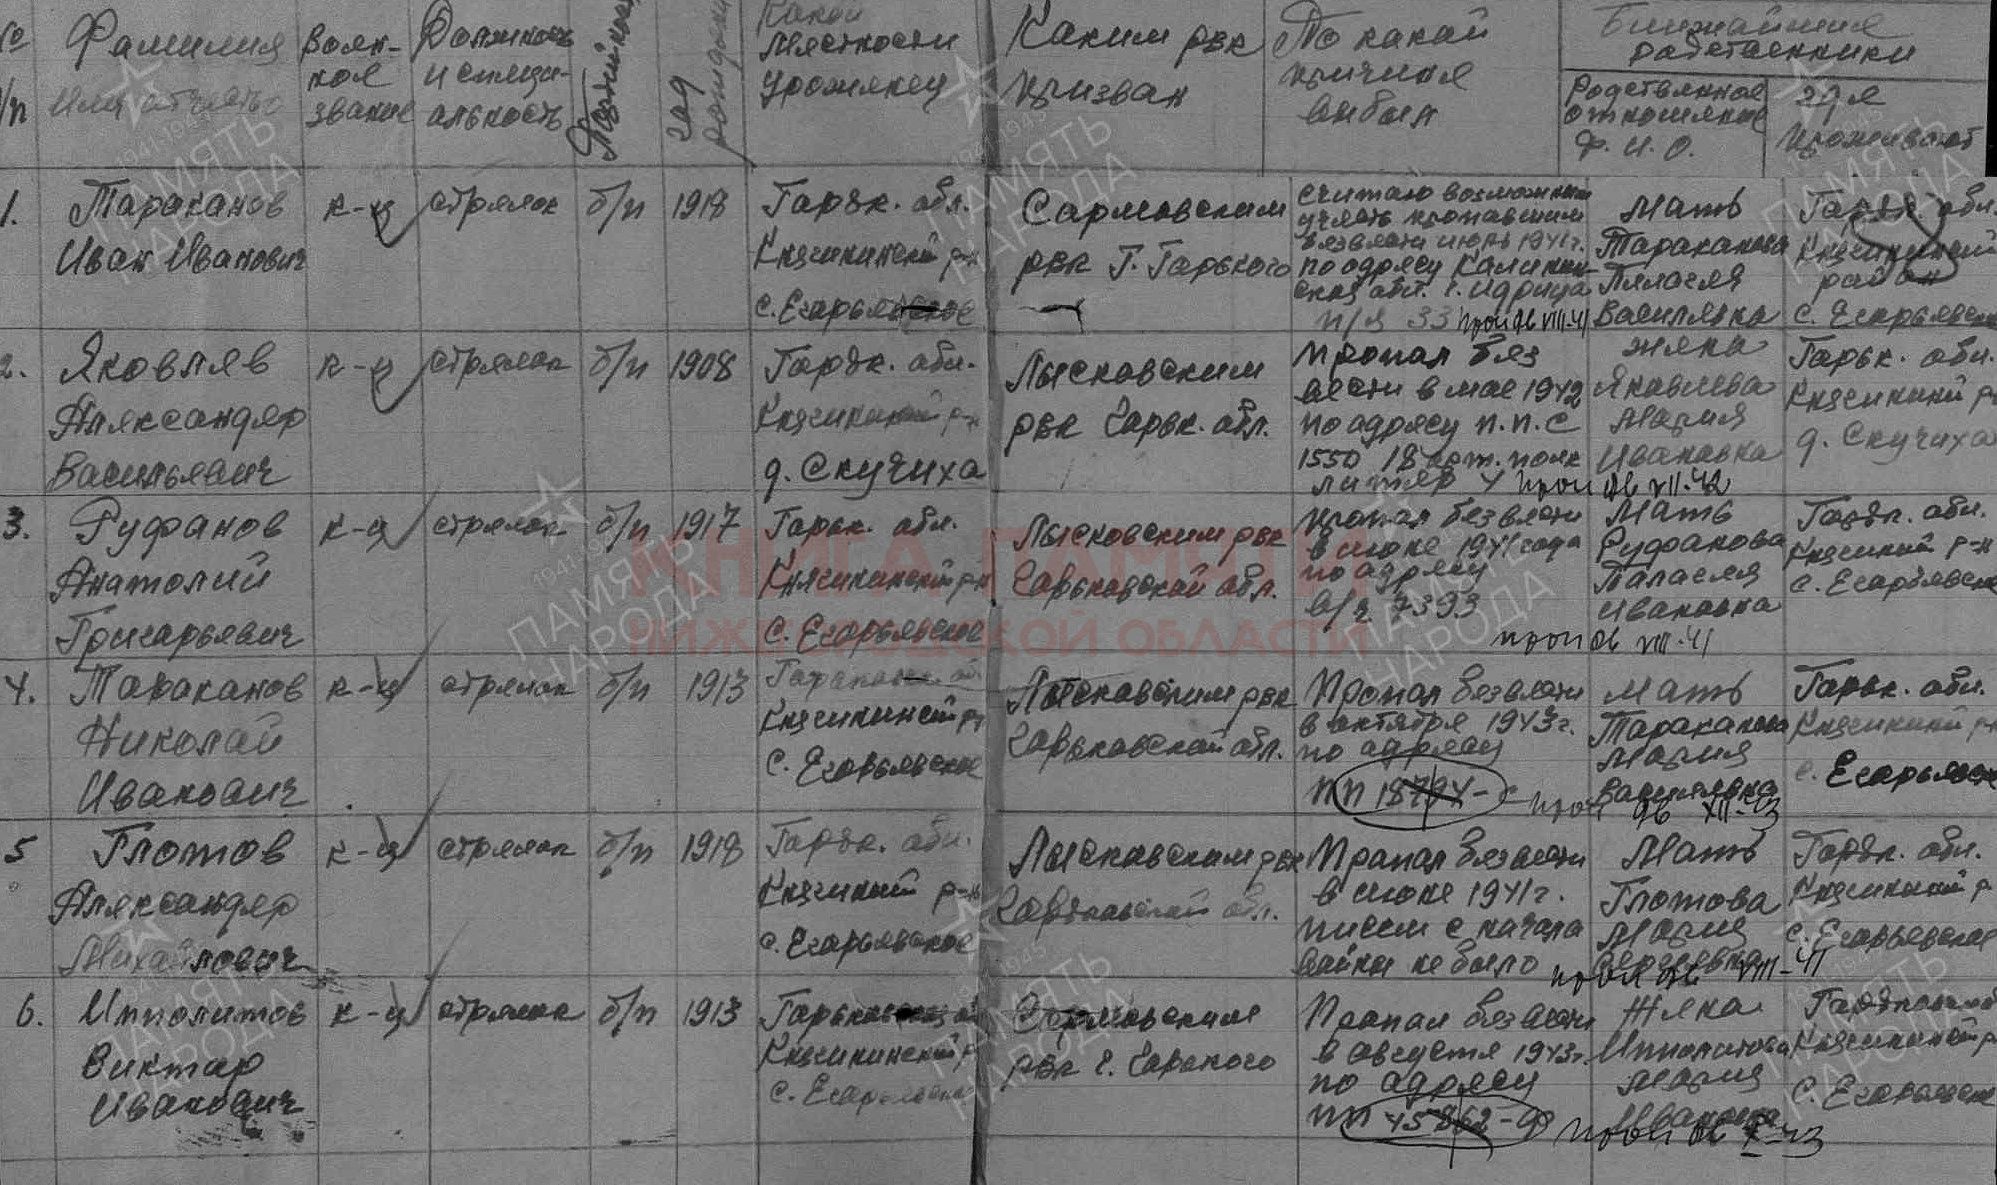 № п/п
Фамилия Имя отчество
Воен-
ное
звание
Должность
и специ-
альность
Партийность
год рождения
Какой
местности
уроженец
Каким рвк
призван
По какой
причине
выбыл
Ближайшие
родственники
Родственное
отношение
Ф. И. О.
где
проживают
1.
Тараканов
Иван Иванович
к-ц
стрелок
б/п
1918
Горьк. обл.
Княгининский р-н
с. Егорьевское
Сормовским
рвк г. Горького
считаю возможным
учесть пропавшим
без вести июль 1941 г.
по адресу Калинин-
ская обл. г. Идрица
п/я 33 проп бв VIII-41
Мать
Тараканова
Пелагея
Васильевна
Горьк. обл.
Княгининский
район
с. Егорьевское
2.
Яковлев
Александр
Васильевич
к-ц
стрелок
б/п
1908
Горьк. обл.
Княгининский р-н
д. Скучиха
Лысковским
рвк Горьк. обл.
Пропал без
вести в мае 1942
по адресу п.п.с
1550 18 арт. полк
литер 4 проп бв VII-42
жена
Яковлева
Мария
Ивановна
Горьк. обл.
Княгининский р-н
д. Скучиха
3.
Руфанов
Анатолий
Григорьевич
к-ц
стрелок
б/п
1917
Горьк. обл.
Княгининский р-н
с. Егорьевское
Лысковским рвк
Горьковской обл.
Пропал без вести
в июне 1941 года
по адресу
в/ч 7393
проп бв VIII-41
Мать
Руфанова
Палагея
Ивановна
Горьк. обл.
Княгиниий р-н
с. Егорьевское
4.
Тараканов
Николай
Иванович
к-ц
стрелок
б/п
1913
Горьковская обл
Княгининский р-н
с. Егорьевское
Лысковским рвк
Горьковской обл.
Пропал без вести
в октябре 1943 г.
по адресу
пп 18794-с проп бв XII-43
Мать
Тараканова
Мария
Васильевна
Горьк. обл.
Княгиниий р-н
с. Егорьевское
5
Глотов
Александр
Михайлович
к-ц
стрелок
б/п
1918
Горьк. обл.
Княгиниий р-н
с. Егорьевское
Лысковским рвк
Горьковской обл.
Пропал без вести
в июне 1941 г.
писем с начала
войны не было проп бв VIII-41
Мать
Глотова
Мария
Сергеевна
Горьк. обл.
Княгиниий р
с. Егорьевское
6.
Ипполитов
Виктор
Иванович
к-ц
стрелок
б/п
1913
Горьковская об
Княгининский р
с. Егорьевское
Сормовским
рвк г. Горького
Пропал без вести
в августе 1943 г.
по адресу
пп 45862-ф проп бв X-43
Жена
Ипполитова
Мария
Ивановна
Горьковской
Княгининский р
с. Егорьевское
КНИГА ПАМЯТИ
НИЖЕГОРОДСКОЙ ОБЛАСТИ
1941-1945
ПАМЯТЬ
НАРОДА